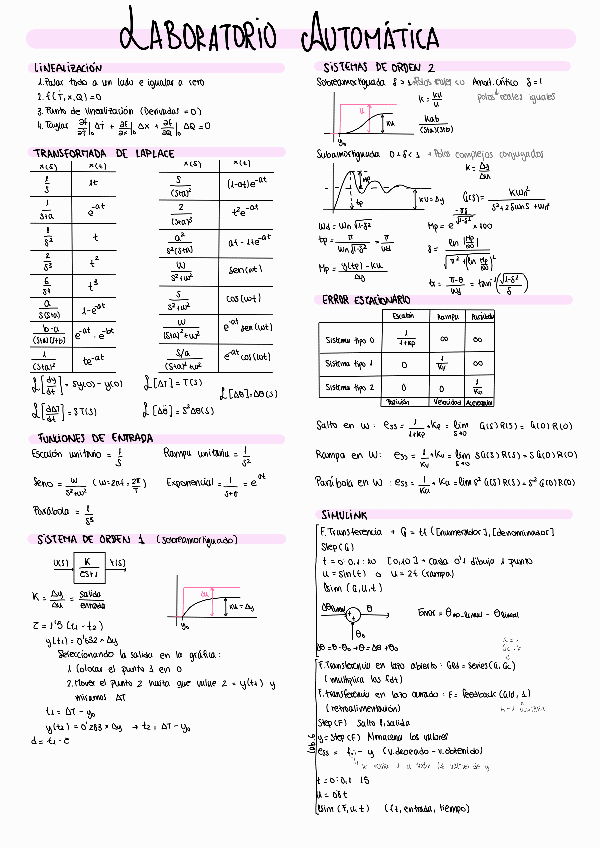 LABORATORIO AUTOMÁTICA
LINEALIZACIÓN
1. Pasar todo a un lado e igualar a cero
2. f(T, x, Q) = 0
3. Punto de linealización (Derivadas = 0)
4. Taylor ∂f/∂T|₀ ΔT + ∂f/∂x|₀ Δx + ∂f/∂Q|₀ ΔQ = 0
TRANSFORMADA DE LAPLACE
x(s) x(t)
1/s 1t
1/(s+a) e^-at
1/s² t
2/s³ t²
6/s⁴ t³
a/(s(s+a)) 1-e^-at
(b-a)/((s+a)(s+b)) e^-at - e^-bt
1/(s+a)² te^-at
x(s) x(t)
s/(s+a)² (1-at)e^-at
2/(s+a)³ t²e^-at
a²/(s²(s+a)) at-1+e^-at
w/(s²+w²) sen(wt)
s/(s²+w²) cos(wt)
w/((s+a)²+w²) e^-at sen(wt)
s+a/((s+a)²+w²) e^-at cos(wt)
L[dy/dt] = sy(s) - y(0) L[ΔT] = T(s)
L[Δθ] = Δθ(s)
L[dΔT/dt] = sT(s) L[Δθ̈] = s²Δθ(s)
FUNCIONES DE ENTRADA
Escalón unitario = 1/s Rampu unitaria = 1/s²
Seno = w/(s²+w²) (w = 2πf = 2π/T) Exponencial = 1/(s+a) = e^-at
Parábola = 1/s³
SISTEMA DE ORDEN 1 (sobreamortiguado)
U(s) K/(τs+1) Y(s)
K = Δy/Δu = salida/entrada
Δu
Ku = Δy
y₀
τ = 1'5 (t₁ - t₂)
y(t₁) = 0'632 × Δy
Seleccionando la salida en la gráfica:
1. Colocar el punto 1 en 0
2. Mover el punto 2 hasta que value 2 = y(t₁) y
miramos ΔT
t₁ = ΔT - y₀
y(t₂) = 0'283 × Δy → t₂ = ΔT - y₀
d = t₁ - τ
SISTEMAS DE ORDEN 2
Sobreamortiguada δ > 1 → Polos reales < 0 Amort. Crítico δ = 1
polos reales iguales
u
Ku
y₀
K = Ku/u
Kab/((s+a)(s+b))
Subamortiguada 0 < δ < 1 → Polos complejos conjugados
Mp
tp
Ku = Δy
K = Δy/Δu
G(s) = Kwn²/(s²+2δwns+wn²)
Wd = Wn √(1-δ²) Mp = e^(-πδ/√(1-δ²)) × 100
tp = π/(Wn√(1-δ²)) = π/Wd
δ = |ln(Mp/100)|/√(π²+(ln Mp/100)²)
Mp = (y(tp) - Ku)/Δy
tr = (π-θ)/Wd = tan⁻¹(√(1-δ²)/δ)
ERROR ESTACIONARIO
Escalón Rampa Parábola
Sistema tipo 0 1/(1+Kp) ∞ ∞
Sistema tipo 1 0 1/Kv ∞
Sistema tipo 2 0 0 1/Ka
Posición Velocidad Aceleración
Salto en W: ess = 1/(1+Kp) → Kp = lim s→0 G(s)R(s) = G(0)R(0)
Rampa en W: ess = 1/Kv → Kv = lim s→0 sG(s)R(s) = sG(0)R(0)
Parábola en W: ess = 1/Ka → Ka = lim s² G(s)R(s) = s² G(0)R(0)
SIMULINK
F. Transferencia → G = tf([Enumerador], [denominador])
Step(G)
t = 0:0,1:10 [0,10] → cada 0'1 dibuja 1 punto
u = sin(t) o u = 2t (rampa)
lsim(G,u,t)
Δθlineal θ
θ₀
Error = θno-lineal - θlineal
Δθ = θ - θ₀ → θ = Δθ + θ₀
F. Transferencia en lazo abierto: Gld = series(G, Gc)
(multiplica las fdt)
F. transferencia en lazo cerrado: F = feedback(Gld, 1)
(retroalimentación)
Step(F) Salto f. salida
lab.6
y = step(F) Almacena los valores
ess = - y (v. deseado - v. obtenido)
t = 0:0,1:15
u = 0'8t
lsim(F, u, t) (f.t, entrada, tiempo)